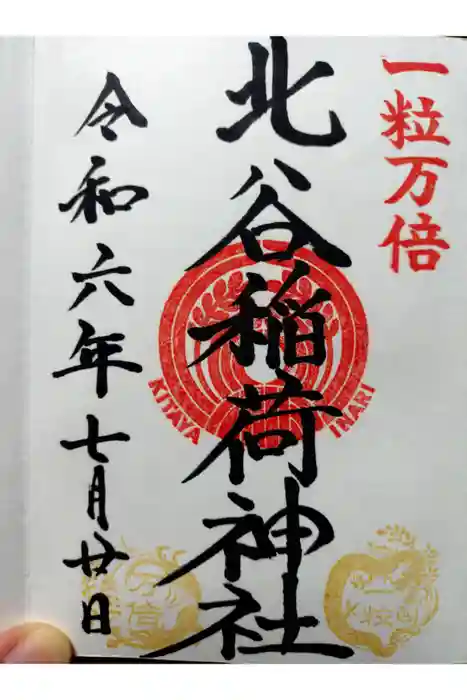 一粒万倍
北谷稲荷神社
KITAYA INARI
令和六年七月廿日
一粒
万倍